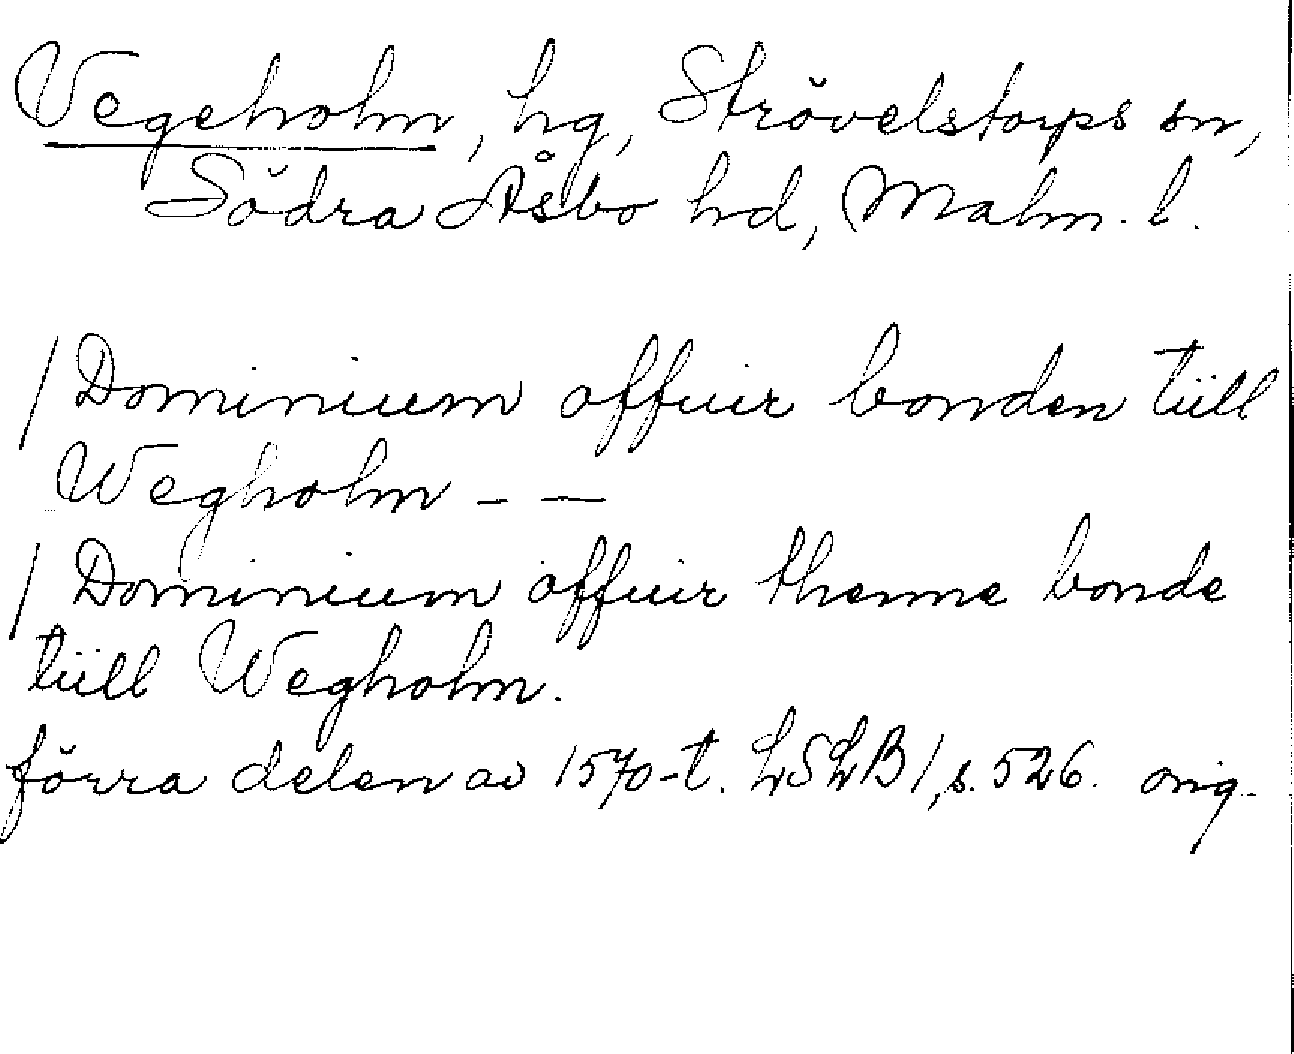 Vegeholm, hg, Strövelstorps sn,
Södra Åsbo hd, Malm. l.
/ Dominium offuir bonden tiill
Wegholm - —
/ Dominium offuir thenne bonde
tiill Wegholm.
förra delen av 1570-t. LSLB 1, s. 526. orig.